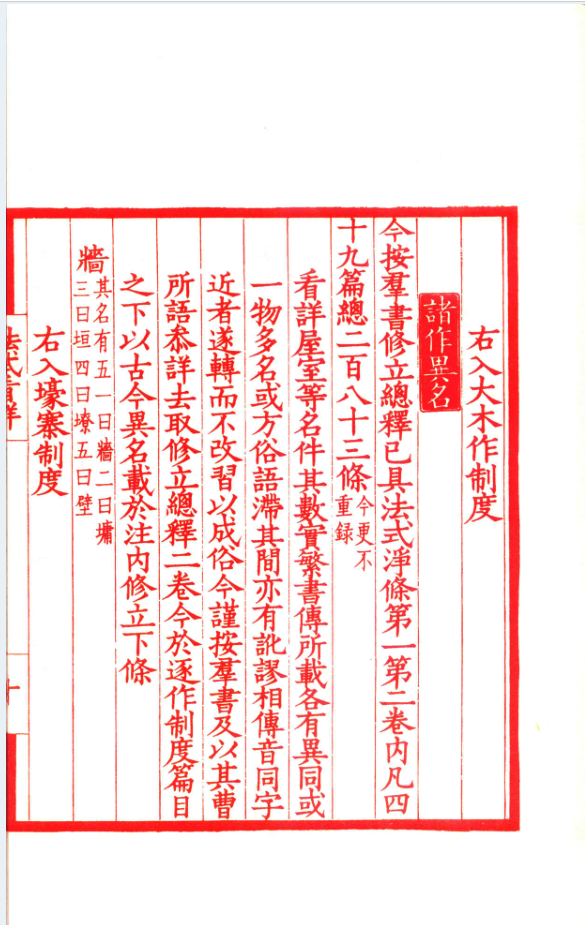 右入大木作制度
諸作異名
今按羣書修立總釋已具法式淨條第一第二卷内凡四
十九篇總二百八十三條今更不
重録
看詳屋室等名件其數實繁書傳所載各有異同或
一物多名或方俗語滯其間亦有訛謬相傳音同字
近者遂轉而不改習以成俗今謹按羣書及以其曹
所語叅詳去取修立總釋二卷今於逐作制度篇目
之下以古今異名載於注内修立下條
牆其名有五一曰牆二曰墉
三曰垣四曰𡑞五曰壁
右入壕寨制度
十